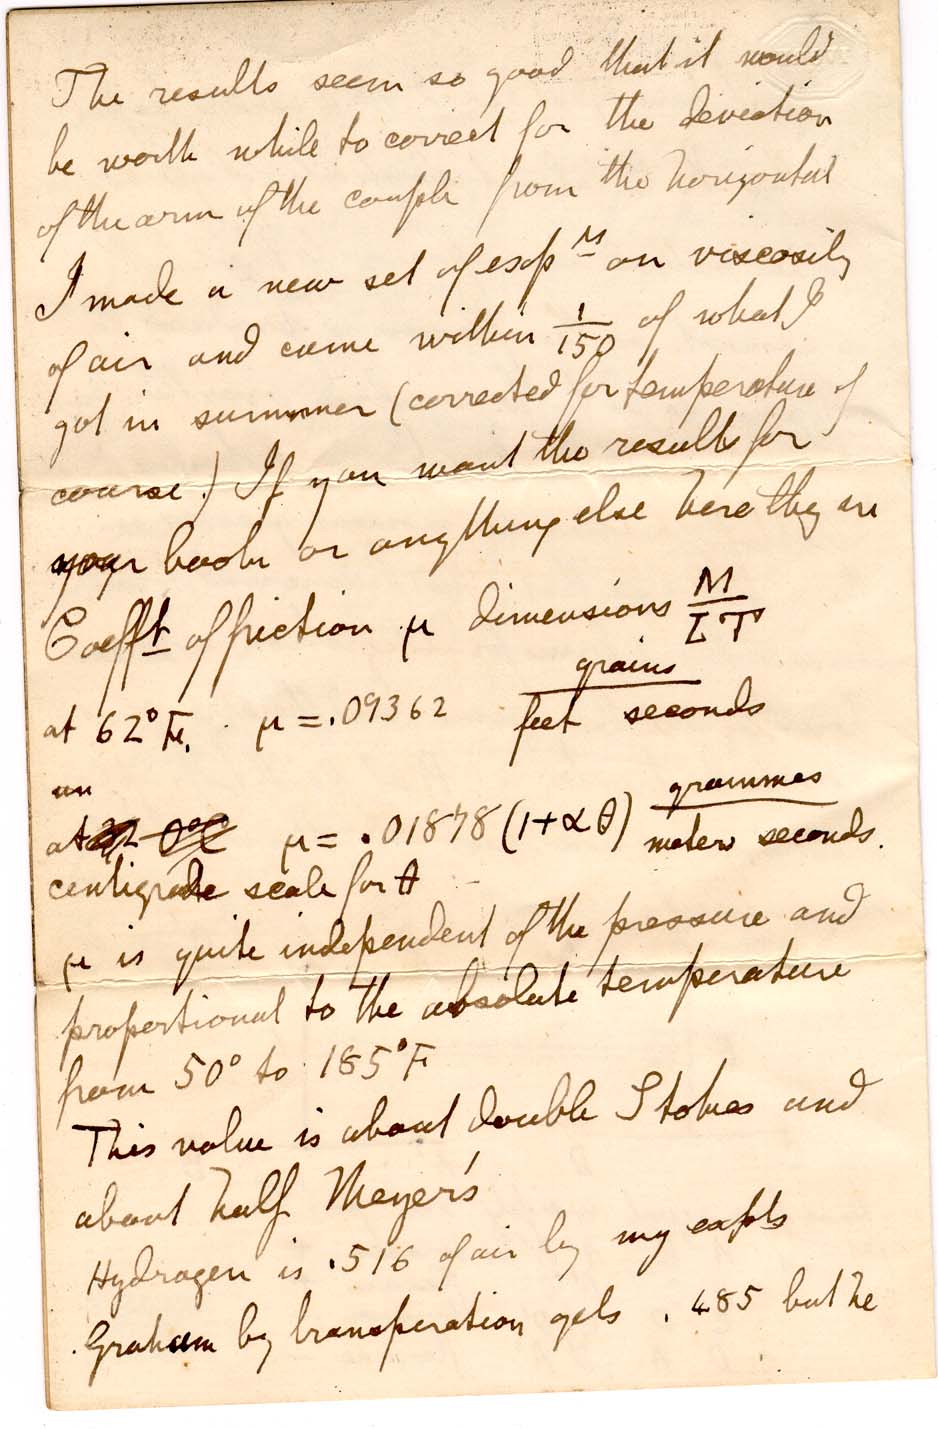 The results seem so good that it would
be worth while to correct for the deviation
of the arm of the couple from the horizontal
I made a new set of exp ts on viscosity
of air and came within 1/150 of what I
got in summer (corrected for temperature of
course.) If you want the results for
your book or anything else here they are
Coefft of friction μ dimensions M/LT
at 62° F. μ = .09362 grains / feet seconds
at μ = .01878 (1+αθ) grammes / meter seconds.
centigrade scale for θ
μ is quite independent of the pressure and
proportional to the absolute temperature
from 50° to 185°F
This value is about double Stokes and
about half Meyer's
Hydrogen is .516 of air by my expts
Graham by transpiration gets .485 but he